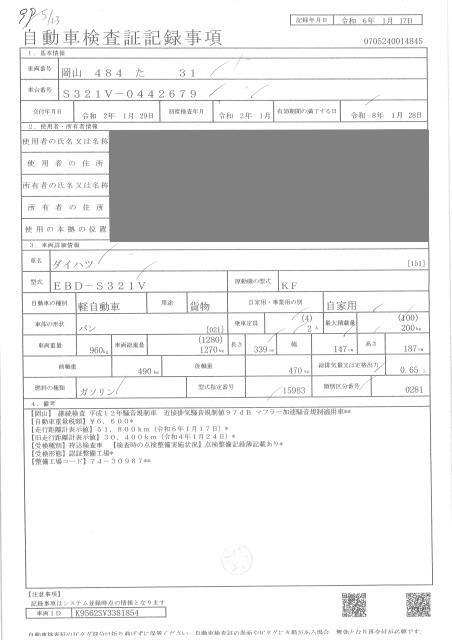 記録年月日 令和 6年 1月 17日
自動車検査証記録事項
0705240014845
1．基本情報
車両番号 岡山 484 た 31
車台番号 S321V-0442679
交付年月日 令和 2年 1月 29日 初度検査年月 令和 2年 1月 有効期間の満了する日 令和 8年 1月 28日
2．使用者・所有者情報
使用者の氏名又は名称
使用者の住所
所有者の氏名又は名称
所有者の住所
使用の本拠の位置
3．車両詳細情報
車名 ダイハツ [151]
型式 EBD-S321V 原動機の型式 KF
自動車の種別 軽自動車 用途 貨物 自家用・事業用の別 自家用
車体の形状 バン [021] 乗車定員 (4) 2人 最大積載量 (100) 200kg
車両重量 960kg 車両総重量 (1280) 1270kg 長さ 339cm 幅 147cm 高さ 187cm
前軸重 490kg 後軸重 470kg 総排気量又は定格出力 0.65 L
燃料の種類 ガソリン 型式指定番号 15983 類別区分番号 0281
4．備考
[岡山] 継続検査 平成12年騒音規制車 近接排気騒音規制値97dB マフラー加速騒音規制適用車**
[自動車重量税額] ¥6,600*
[走行距離計表示値] 51,800km (令和6年1月17日)*
[旧走行距離計表示値] 30,400km (令和4年1月24日)*
[受検種別] 持込検査車 [検査時の点検整備実施状況] 点検整備記録簿記載あり*
[受検形態] 認証整備工場*
[整備工場コード] 74-30987**
[注意事項]
記録事項はシステム登録時点の情報となります
車両ID K9562SV3381854